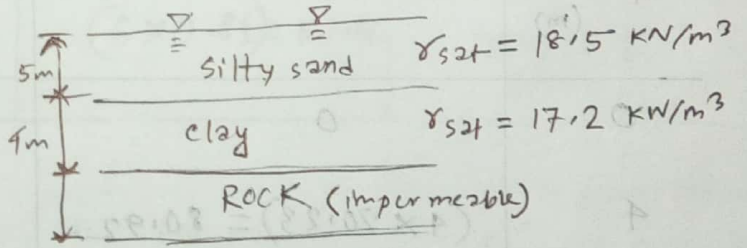 Silty sand γsat = 18.5 KN/m³
5m
clay γsat = 17.2 KN/m³
4m
ROCK (impermeable)